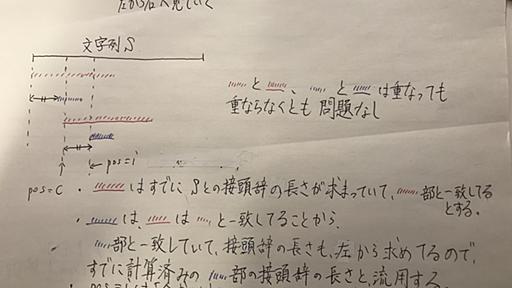 左から右へ見ていく
文字列 S
と 、 と は重なっても
重ならなくとも 問題なし
pos=i
pos=c
・ はすでに Sとの接頭辞の長さが求まっていて、 部と一致してる
とする。
・ は、 は と一致してることから、
部と一致していて、接頭辞の長さも、左から求めてるので、
すでに計算済みの 部の接頭辞の長さと、流用する。